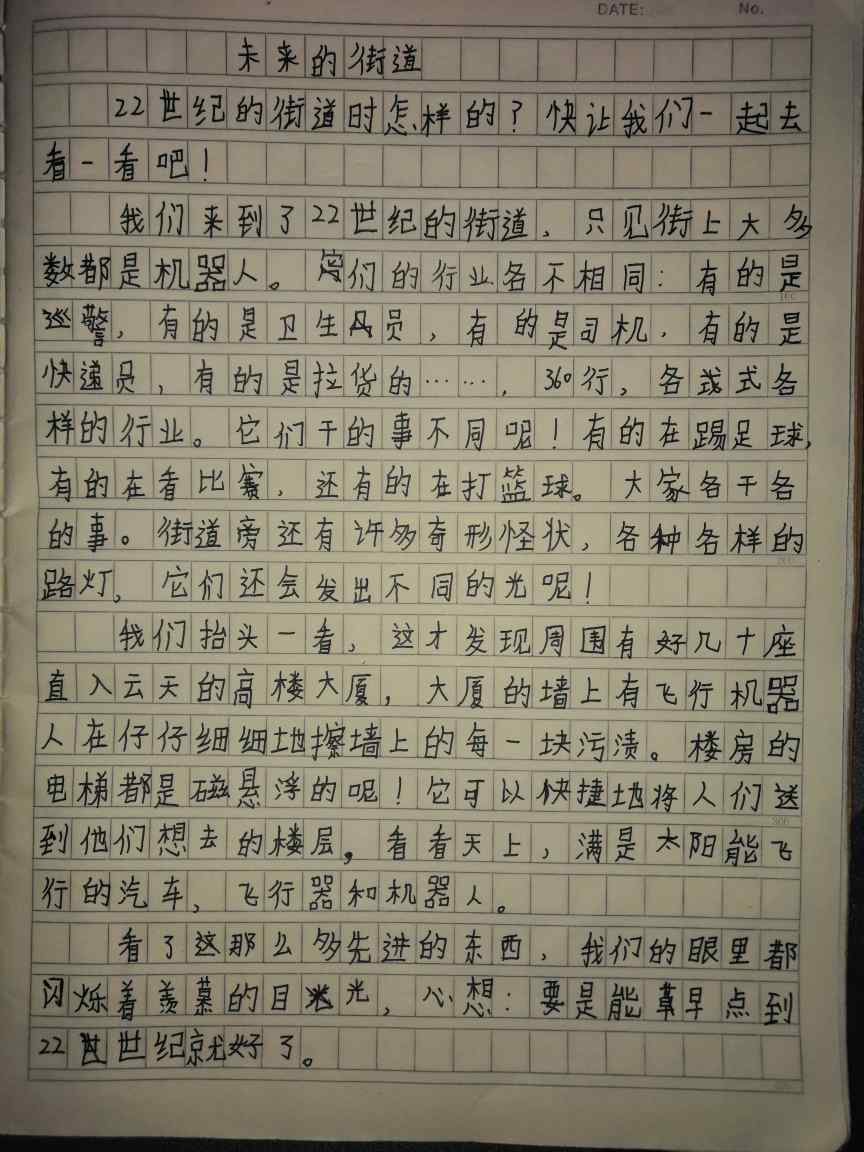 DATE: No.
未来的街道
22世纪的街道时怎样的？快让我们一起去
看一看吧！
我们来到了22世纪的街道，只见街上大多
数都是机器人。它们的行业各不相同：有的是
巡警，有的是卫生员，有的是司机，有的是
快递员，有的是拉货的……，360行，各式各
样的行业。它们干的事不同呢！有的在踢足球，
有的在看比赛，还有的在打篮球。大家各干各
的事。街道旁还有许多奇形怪状，各种各样的
路灯，它们还会发出不同的光呢！
我们抬头一看，这才发现周围有好几十座
直入云天的高楼大厦，大厦的墙上有飞行机器
人在仔仔细细地擦墙上的每一块污渍。楼房的
电梯都是磁悬浮的呢！它可以快捷地将人们送
到他们想去的楼层，看看天上，满是太阳能飞
行的汽车，飞行器和机器人。
看了这那么多先进的东西，我们的眼里都
闪烁着羡慕的目光，心想：要是能早点到
22世纪就好了。